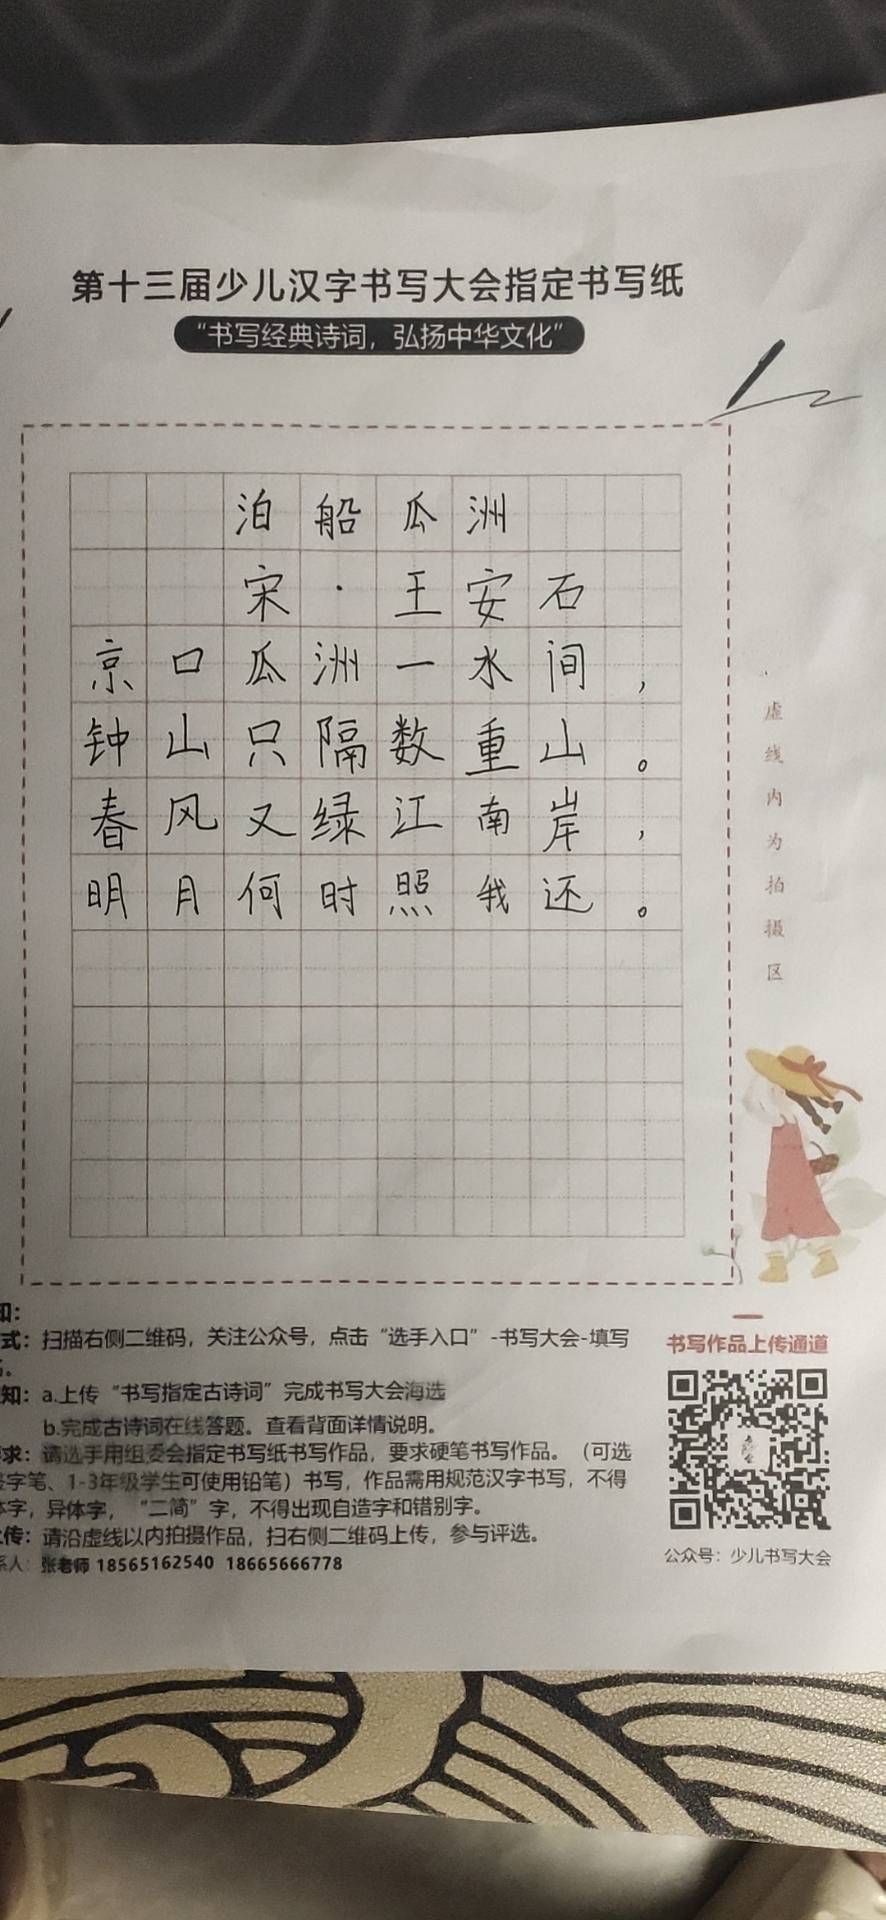 第十三届少儿汉字书写大会指定书写纸
“书写经典诗词，弘扬中华文化”
泊船瓜洲
宋·王安石
京口瓜洲一水间，
钟山只隔数重山。
春风又绿江南岸，
明月何时照我还。
虚线内为拍摄区
知：
式：扫描右侧二维码，关注公众号，点击“选手入口”-书写大会-填写
知：a.上传“书写指定古诗词”完成书写大会海选
b.完成古诗词在线答题。查看背面详情说明。
求：请选手用组委会指定书写纸书写作品，要求硬笔书写作品。（可选
字笔、1-3年级学生可使用铅笔）书写，作品需用规范汉字书写，不得
字，异体字，“二简”字，不得出现自造字和错别字。
传：请沿虚线以内拍摄作品，扫右侧二维码上传，参与评选。
系人：张老师 18565162540 18665666778
书写作品上传通道
公众号：少儿书写大会